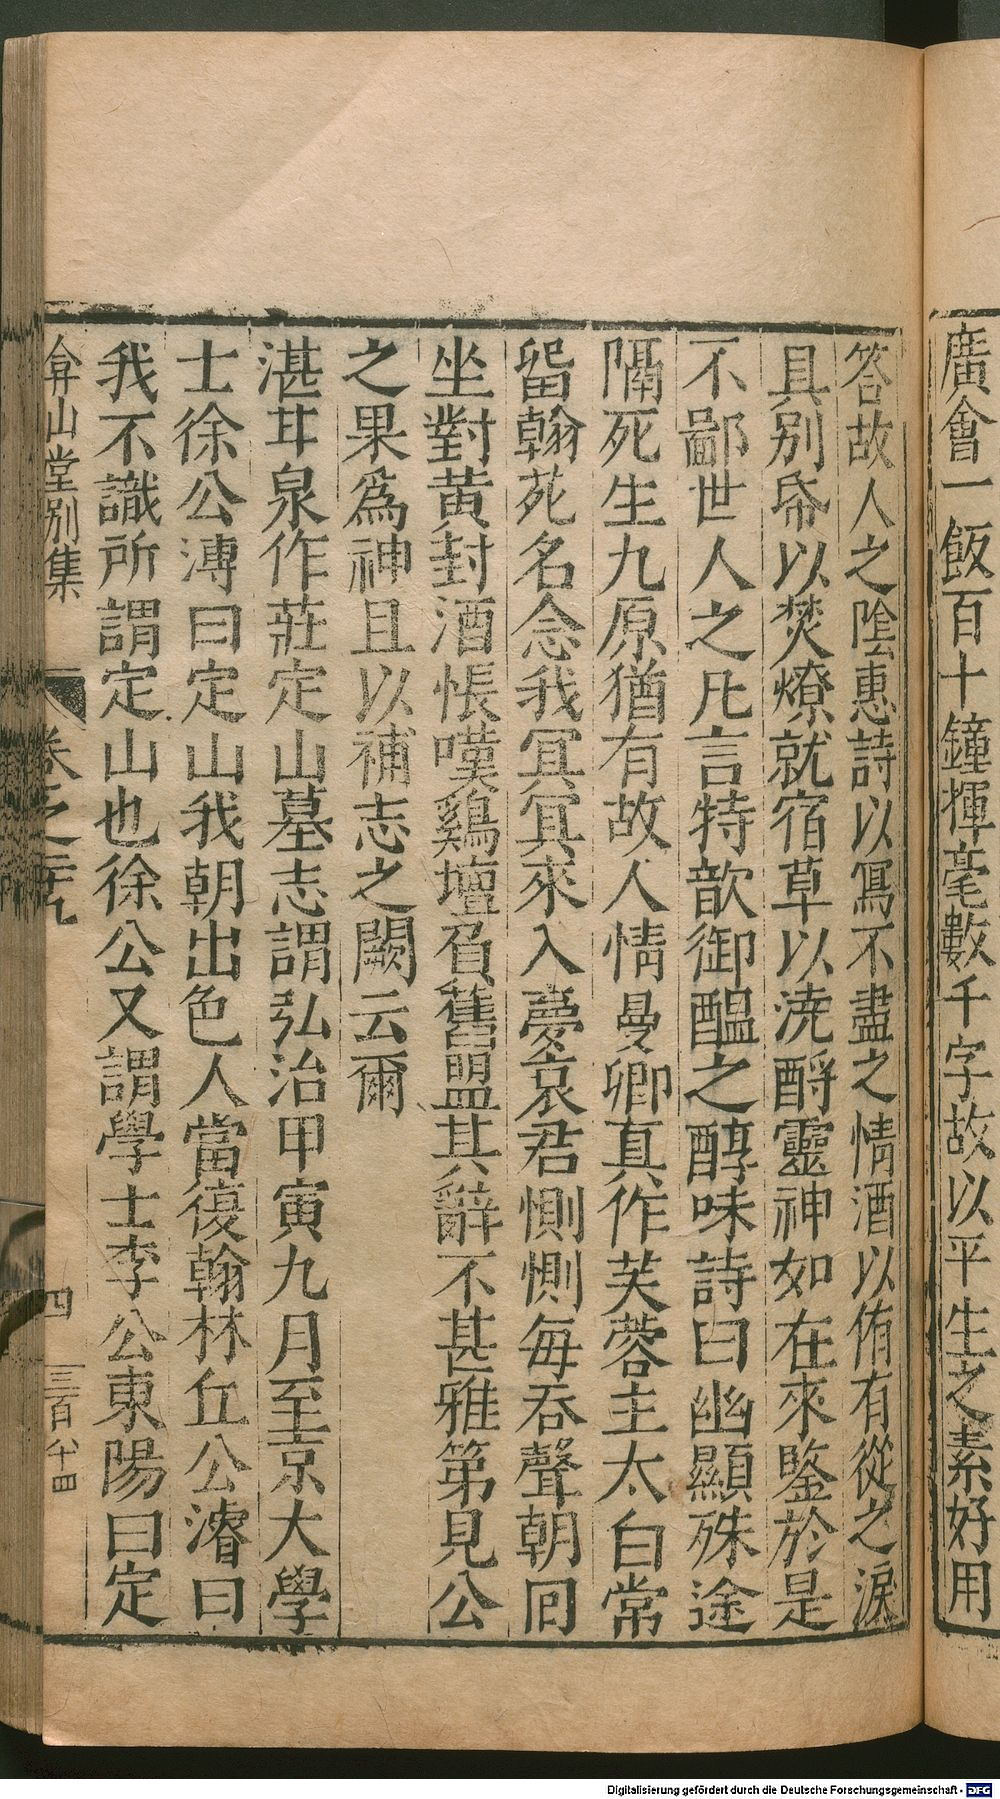 廣會一飯百十鐘揮毫數千字故以平生之素好用
答故人之陰惠詩以寫不盡之情酒以侑有從之淚
具別帋以焚燎就宿草以澆酹靈神如在來鑒於是
不鄙世人之凡言特歆御醞之醇味詩曰幽顯殊途
隔死生九原猶有故人情曼卿真作芙蓉主太白常
留翰苑名念我冥冥來入夢哀君惻惻每吞聲朝回
坐對黄封酒悵嘆鷄壇負舊盟其辭不甚雅第見公
之果爲神且以補志之闕云爾
湛甘泉作莊定山墓志謂弘治甲寅九月至京大學
士徐公溥曰定山我朝出色人當復翰林丘公濬曰
我不識所謂定山也徐公又謂學士李公東陽曰定
弇山堂別集 卷之二十九 四 三百八十四
Digitalisierung gefördert durch die Deutsche Forschungsgemeinschaft - DFG